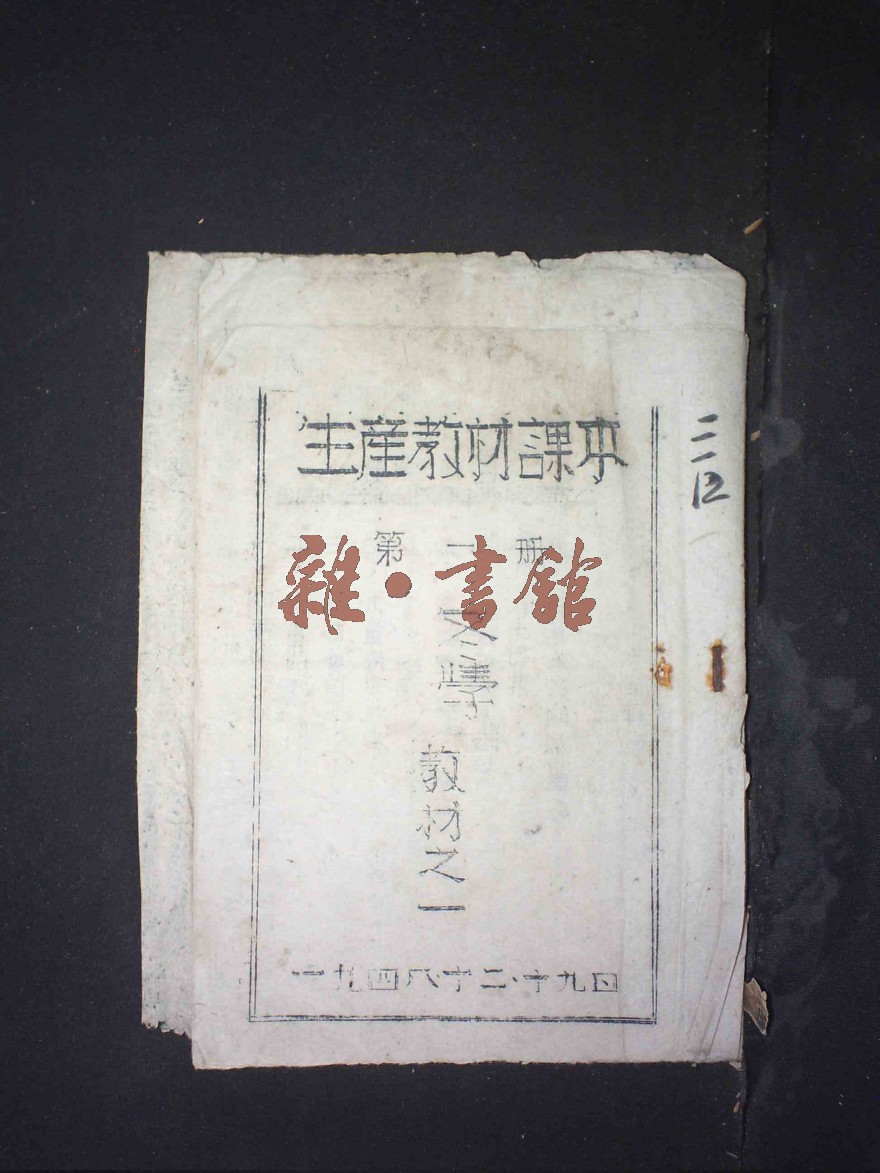 生産教材課本
第一册
雜·書館
冬學
教材之一
一九四八·十二·十九日